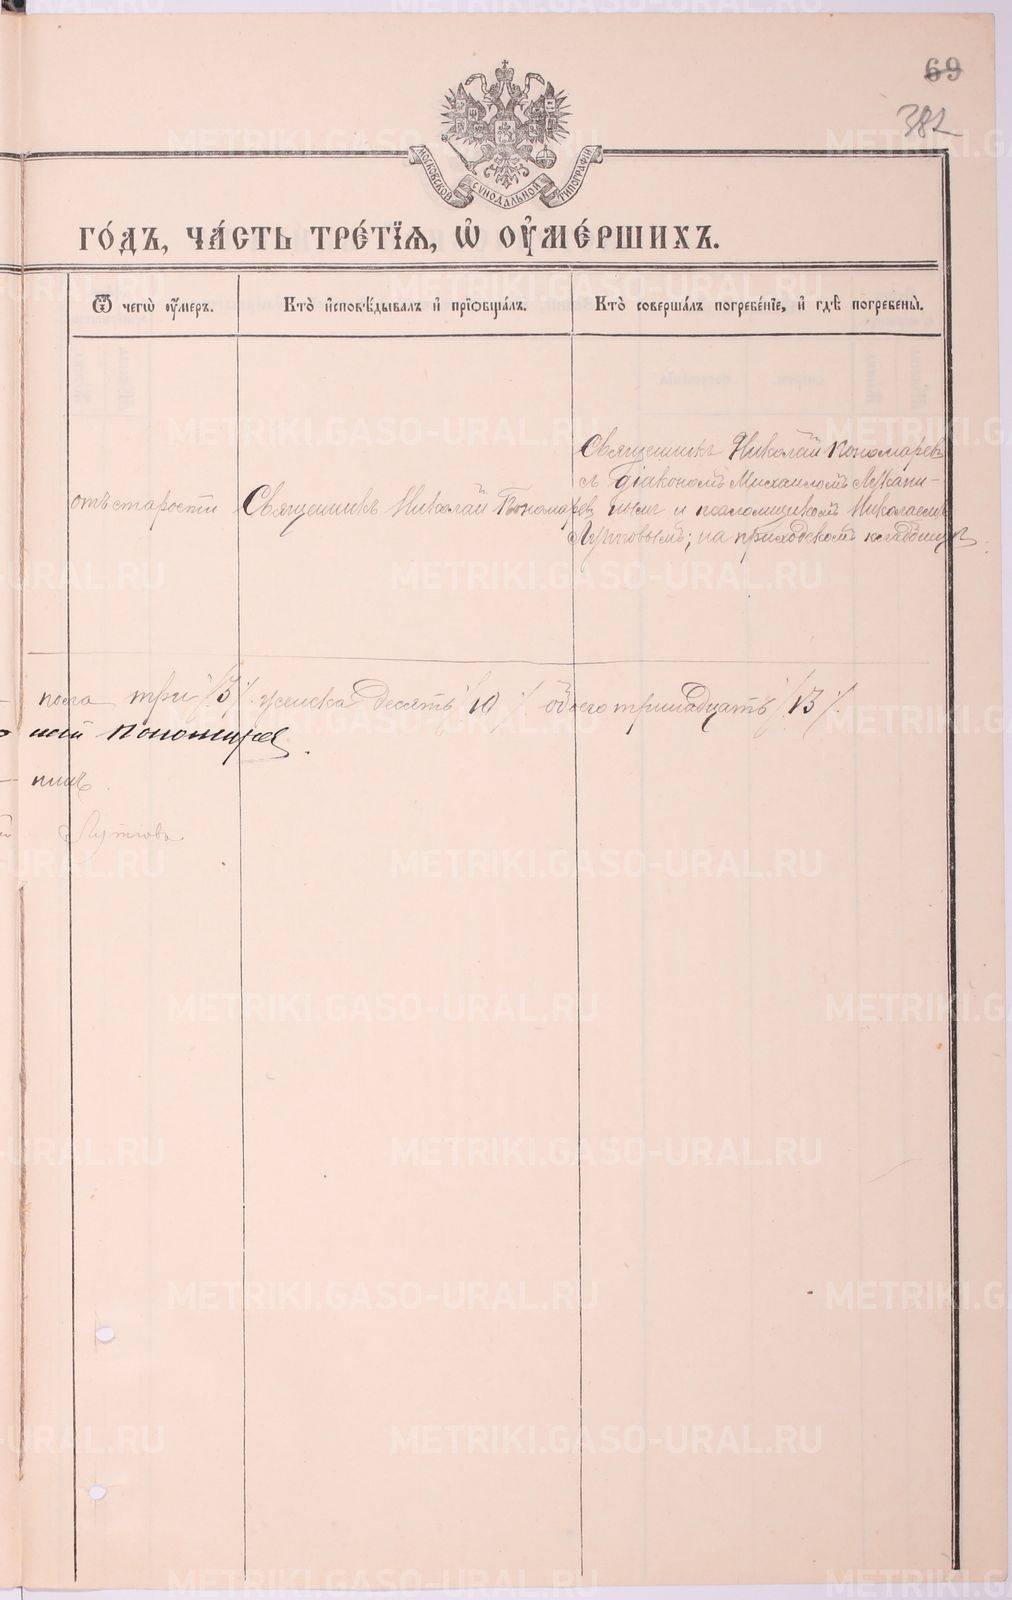 69
382
МОСКОВСКОЙ СУНОДАЛЬНОЙ ТИПОГРАФІИ
ГО́ДЪ, ЧА́СТЬ ТРЕ́ТЇѦ, Ѡ҆ ОУ҆МЕ́РШИХЪ.
Ѿ чегѡ̀ оу҆́меръ.
Кто̀ и҆сповѣ́дывалъ и҆ прїѻбща́лъ.
Кто̀ соверша́лъ погребе́нїе, и҆ гдѣ̀ погребены̀.
отъ старости
Священникъ Николай Пономарев
Священникъ Николай Пономаревъ
съ діакономъ Михаиломъ
и псаломщикомъ Николаемъ
на приходскомъ кладбищѣ
пола три /3/. женска десять /10/. обоего тринадцать /13/.
Пономарев
METRIKI.GASO-URAL.RU